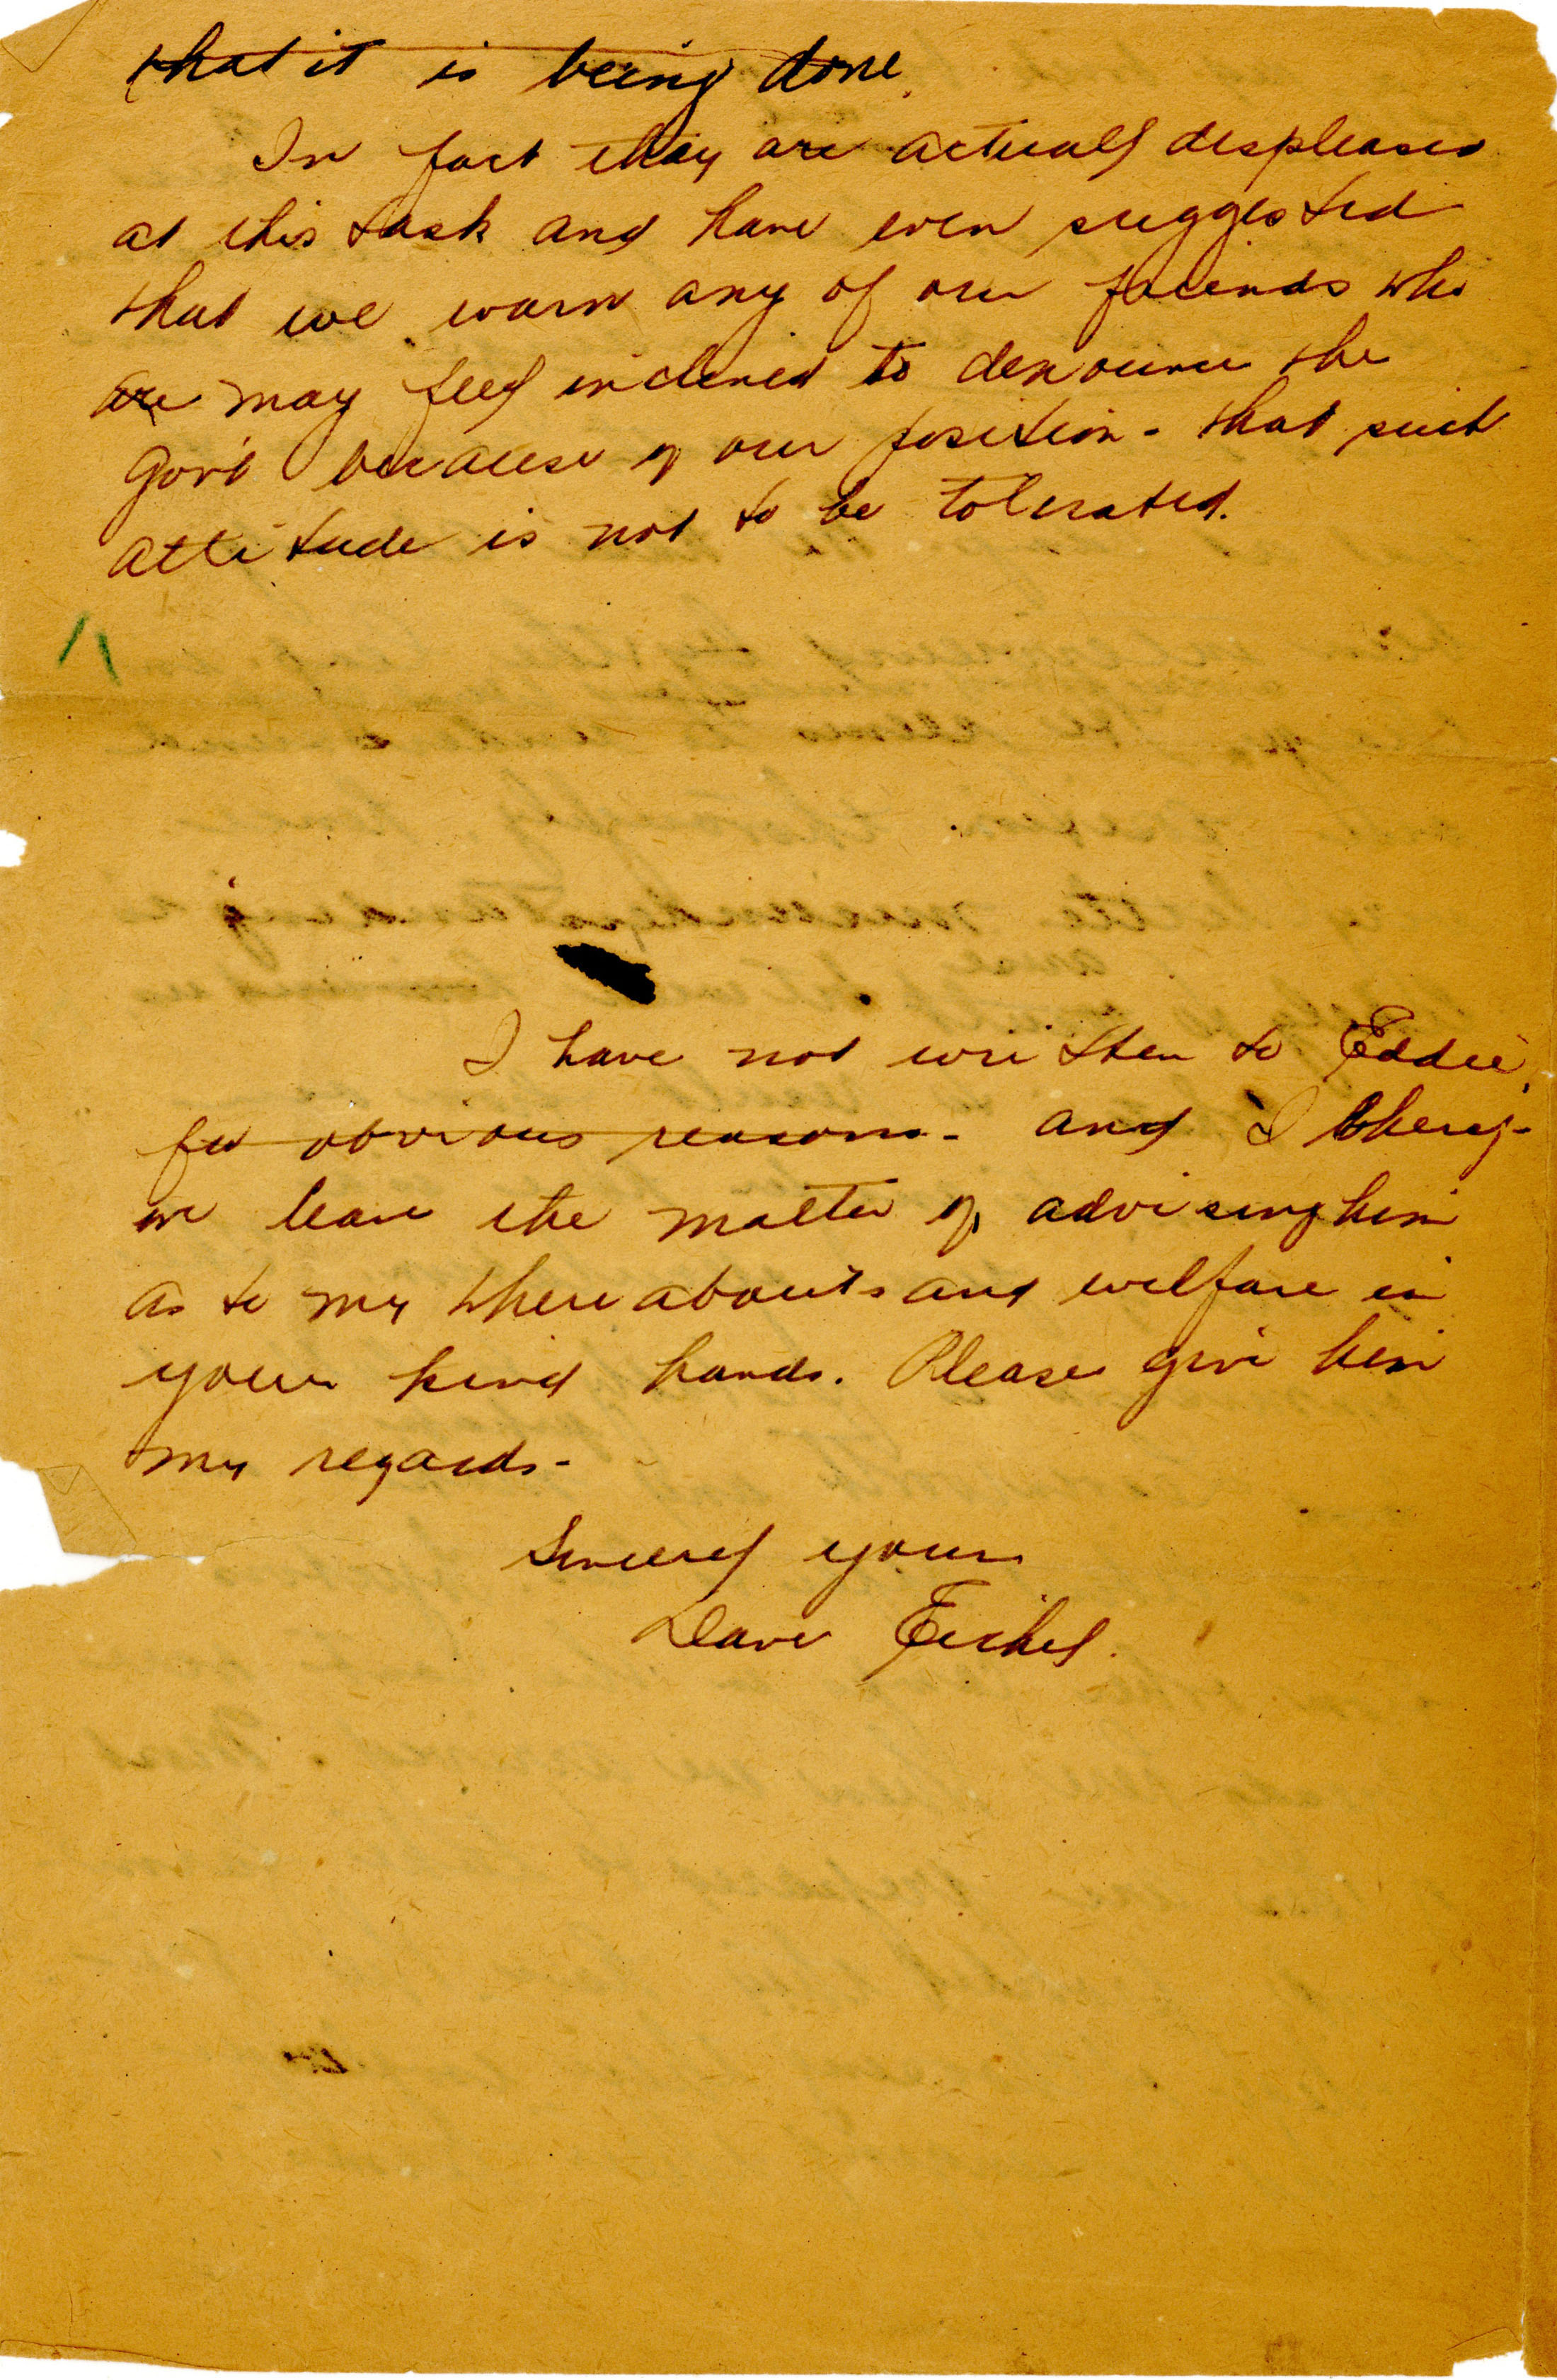 that it is being done.
In fact they are actually displeased
at this task and have even suggested
that we warn any of our friends who
are may feel inclined to denounce the
Gov't because of our position - that such
attitude is not to be tolerated.
I have not written to Eddie,
for obvious reasons - and I theref-
ore leave the matter of advising him
as to my whereabouts and welfare in
your kind hands. Please give him
my regards -
Sincerely yours
Dave Eichel.